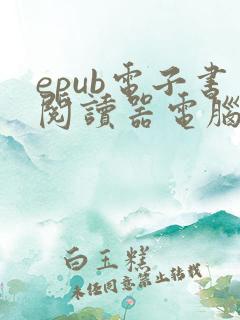 epub電子書
閱讀器電腦
白玉糕
未經同意禁止轉載